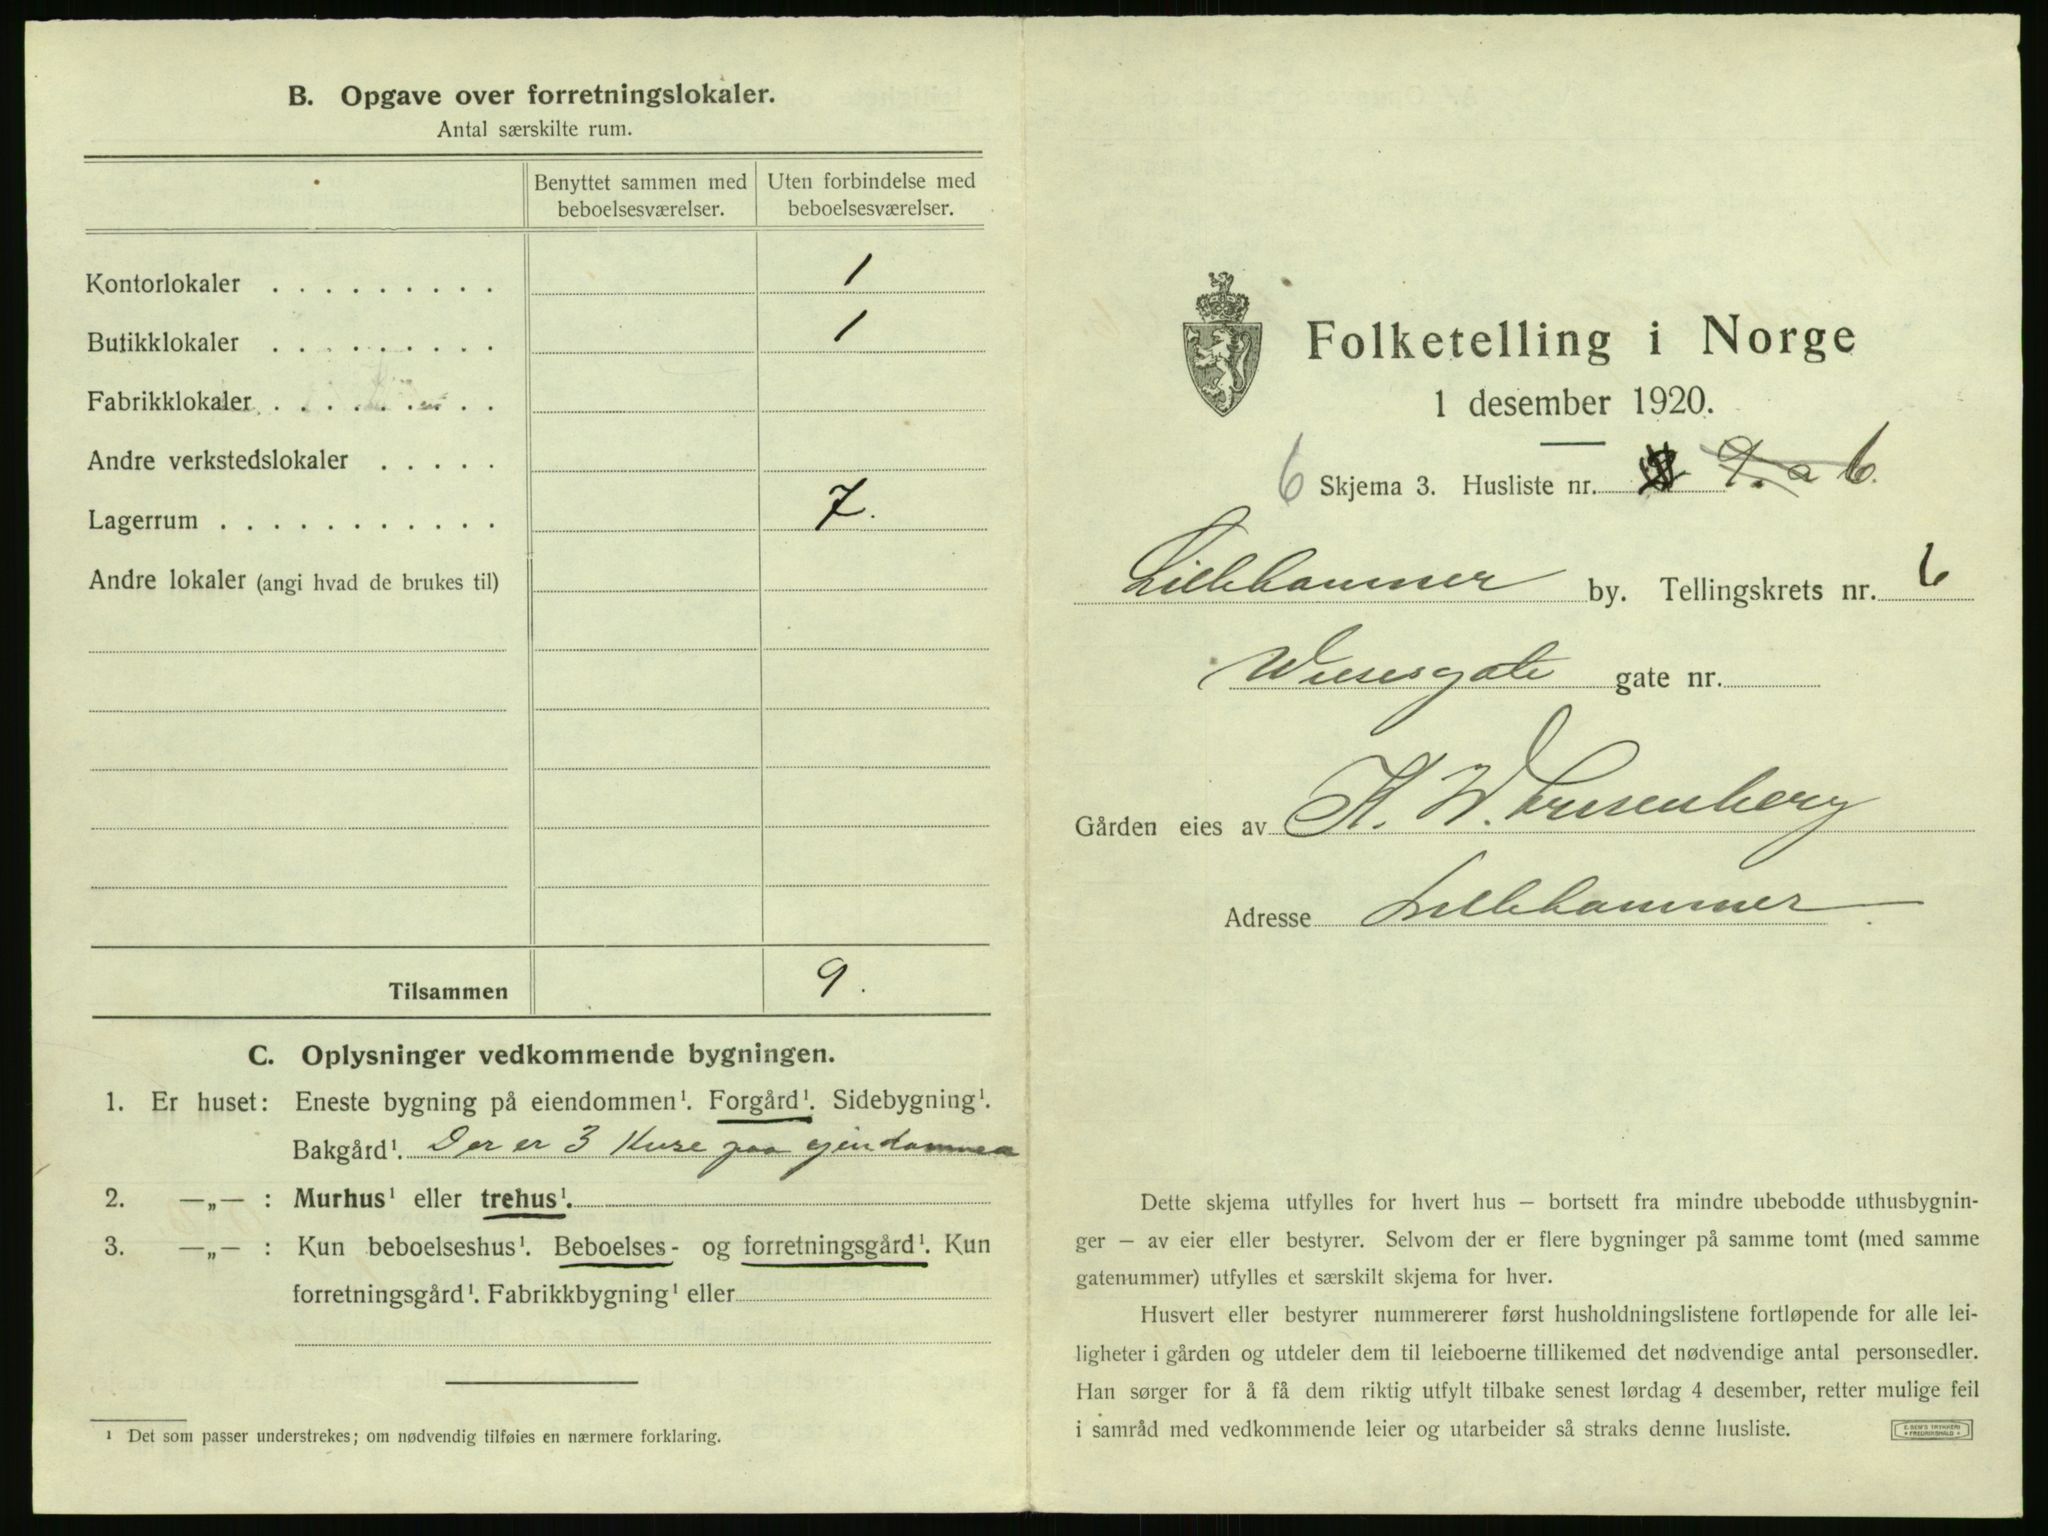 B. Opgave over forretningslokaler.
Antal særskilte rum.
Benyttet sammen med beboelsesværelser.
Uten forbindelse med beboelsesværelser.
Kontorlokaler . . . . . . . . . 1
Butikklokaler . . . . . . . . . 1
Fabrikklokaler . . . . . . . . .
Andre verkstedslokaler . . . . .
Lagerrum . . . . . . . . . . . . 7.
Andre lokaler (angi hvad de brukes til)
Tilsammen 9.
C. Oplysninger vedkommende bygningen.
1. Er huset: Eneste bygning på eiendommen¹. Forgård¹. Sidebygning¹.
Bakgård¹. Der er 3 Huse paa ejendommen
2. —„— : Murhus¹ eller trehus¹.
3. —„— : Kun beboelseshus¹. Beboelses- og forretningsgård¹. Kun
forretningsgård¹. Fabrikkbygning¹ eller
¹ Det som passer understrekes; om nødvendig tilføies en nærmere forklaring.
Folketelling i Norge
1 desember 1920.
6 Skjema 3. Husliste nr. 6.
Lillehammer by. Tellingskrets nr. 6
Wiesesgate gate nr.
Gården eies av K. W.
Adresse Lillehammer
Dette skjema utfylles for hvert hus — bortsett fra mindre ubebodde uthusbygnin-
ger — av eier eller bestyrer. Selvom der er flere bygninger på samme tomt (med samme
gatenummer) utfylles et særskilt skjema for hver.
Husvert eller bestyrer nummererer først husholdningslistene fortløpende for alle lei-
ligheter i gården og utdeler dem til leieboerne tillikemed det nødvendige antal personsedler.
Han sørger for å få dem riktig utfylt tilbake senest lørdag 4 desember, retter mulige feil
i samråd med vedkommende leier og utarbeider så straks denne husliste.
E. SEM'S TRYKKERI
FREDRIKSHALD